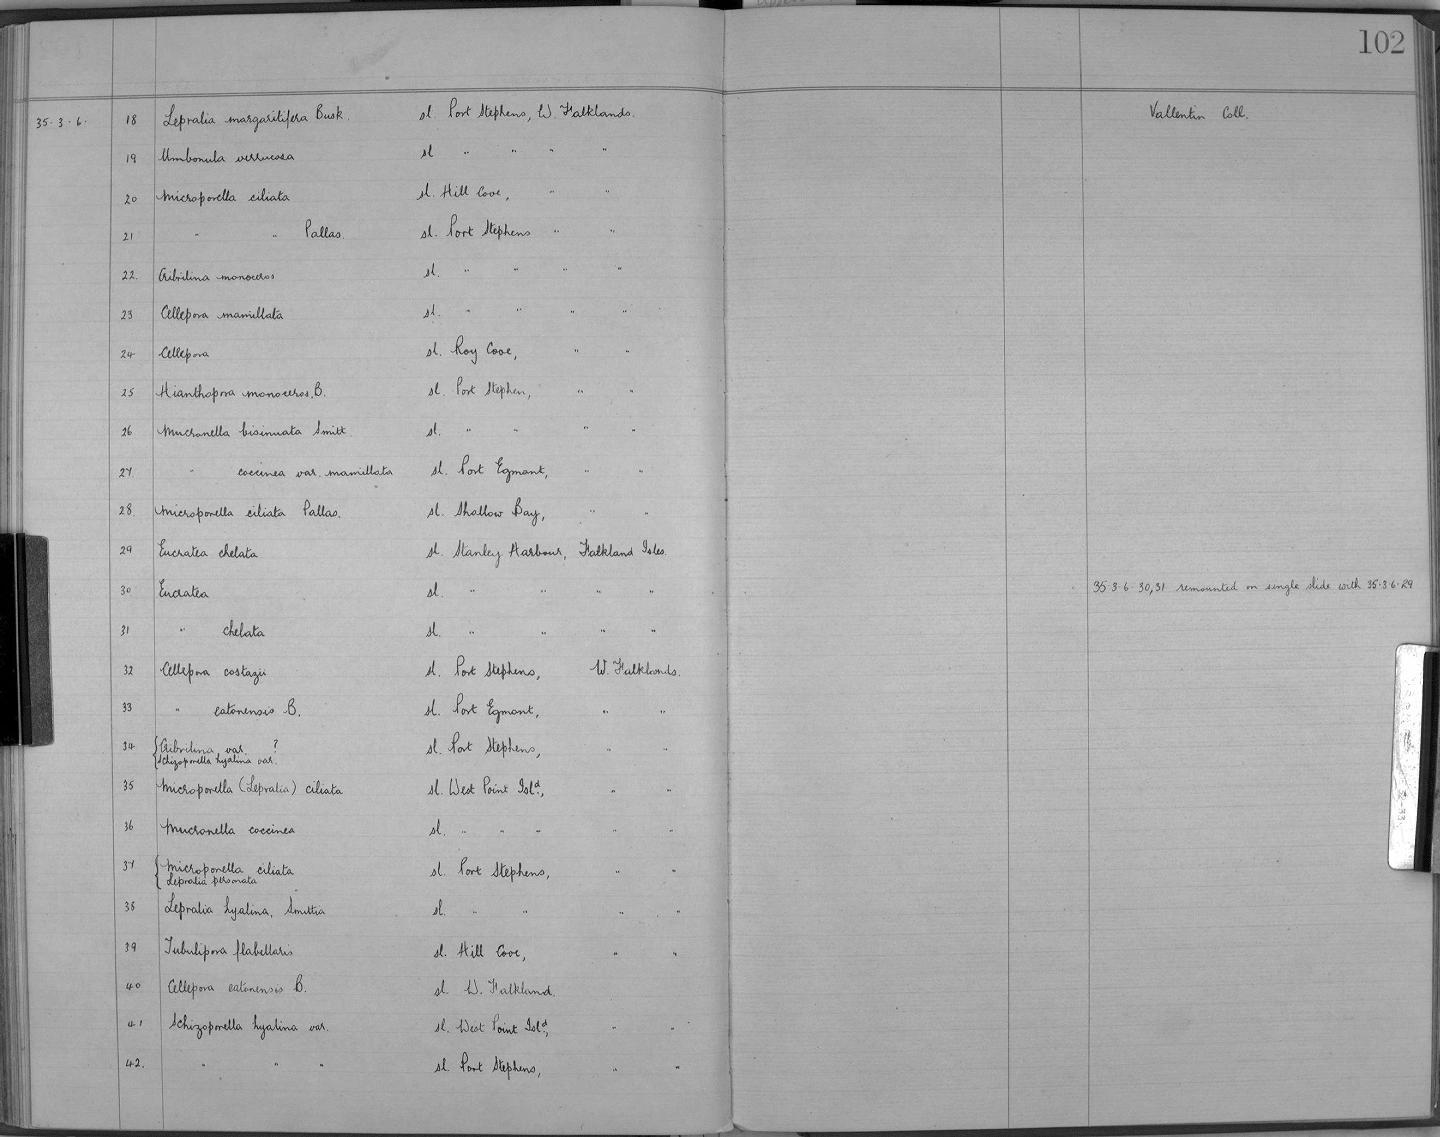 102
35.3.6. 18 Lepralia margaritifera Busk. sl. Port Stephens, W. Falklands. Vallentin Coll.
19 Umbonula verrucosa sl " " " "
20 Microporella ciliata sl. Hill Cove, " "
21 " " Pallas. sl. Port Stephens " "
22. Cribrilina monoceros sl. " " " "
23 Cellepora mamillata sl. " " " "
24 Cellepora sl. Roy Cove, " "
25 Hianthopora monoceros. B. sl. Port Stephen, " "
26 Mucronella bisinuata Smitt sl. " " " "
27 " coccinea var. mamillata sl. Port Egmont, " "
28. Microporella ciliata Pallas. sl. Shallow Bay, " "
29 Eucratea chelata sl. Stanley Harbour, Falkland Isles.
30 Eucratea sl. " " " " 35.3.6.30,31 remounted on single slide with 35.3.6.29
31 " chelata sl. " " " "
32 Cellepora costazii sl. Port Stephens, W. Falklands.
33 " eatonensis B. sl. Port Egmont, " "
34 { Cribrilina var. ? sl. Port Stephens, " "
Schizoporella hyalina var.
35 Microporella (Lepralia) ciliata sl. West Point Isld., " "
36 Mucronella coccinea sl. " " " " "
37 { Microporella ciliata sl. Port Stephens, " "
Lepralia personata
38 Lepralia hyalina, Smittia sl. " " " "
39 Tubulipora flabellaris sl. Hill Cove, " "
40 Cellepora eatonensis B. sl. W. Falkland.
41 Schizoporella hyalina var. sl. West Point Isld., " "
42. " " " sl. Port Stephens, " "